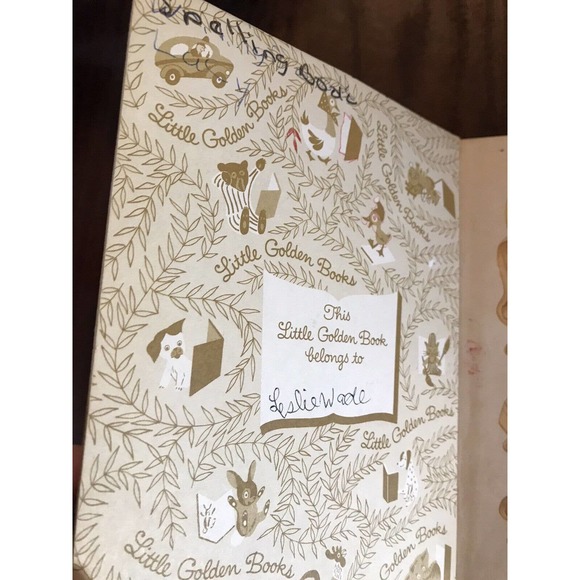 Spelling Book
Little Golden Books
Little Golden Books
Little Golden Books
This
Little Golden Book
belongs to
Leslie Wade
Little Golden Books
Little Golden Books
Little Golden Books